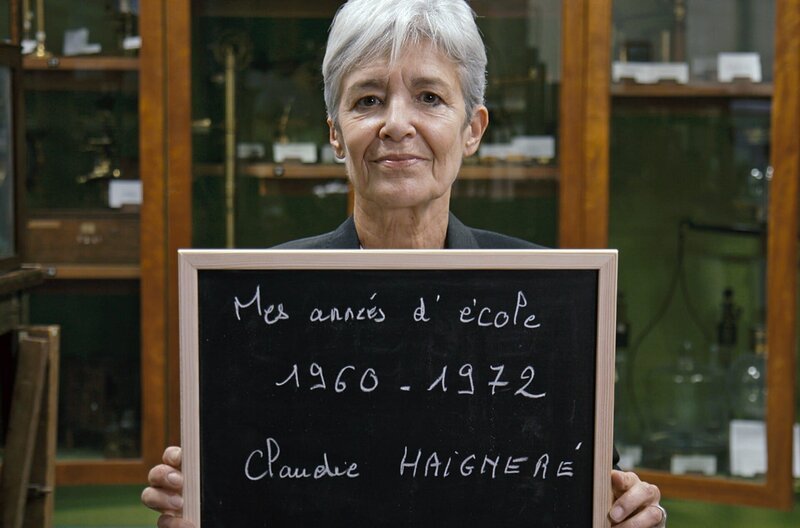 Mes années d'école
1960 - 1972
Claudie HAIGNERÉ